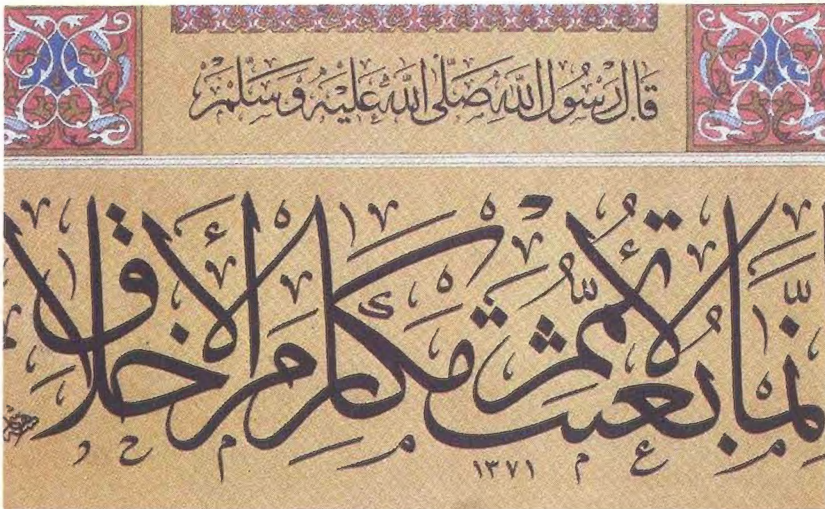 قَالَ رَسُولُ اللهِ صَلَّى اللهُ عَلَيْهِ وَسَلَّمَ
إنَّمَا بُعِثْتُ لِأُتَمِّمَ مَكَارِمَ الْأَخْلَاقِ
١٣٧١